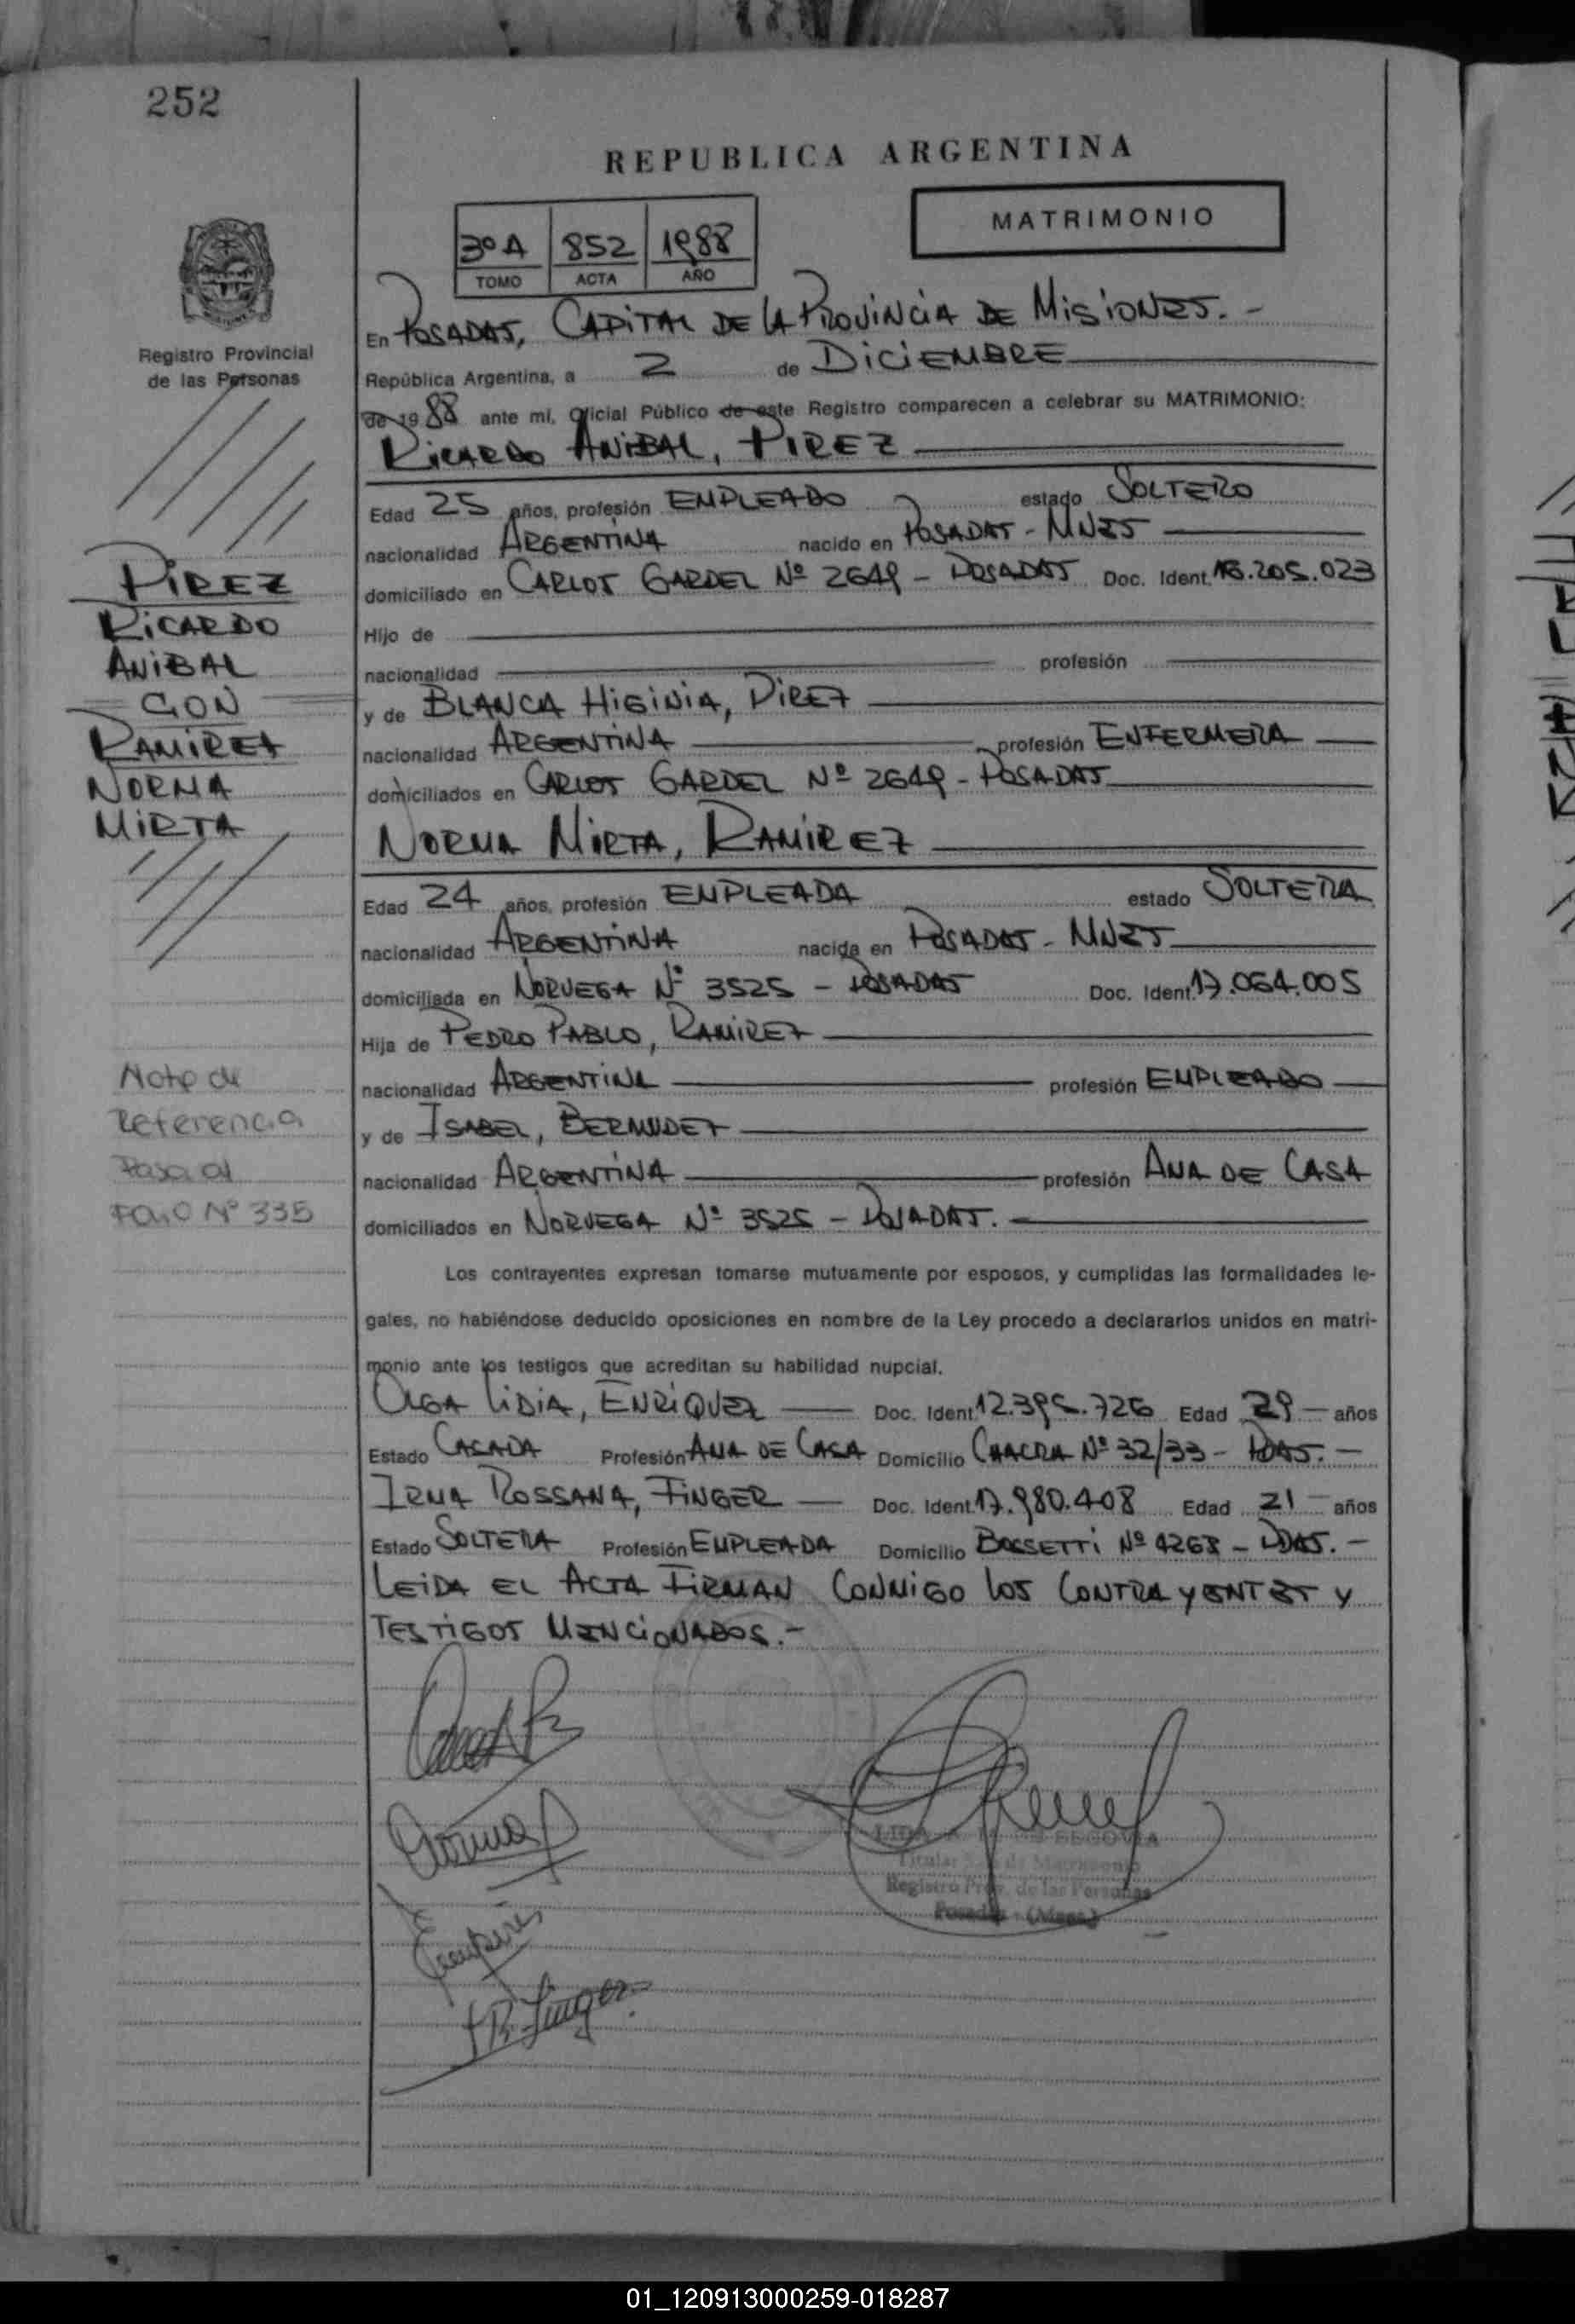 252
REPUBLICA ARGENTINA
MATRIMONIO
3º A 852 1988
TOMO ACTA AÑO
Registro Provincial
de las Personas
En POSADAS, CAPITAL DE LA PROVINCIA DE MISIONES. -
República Argentina, a 2 de DICIEMBRE
de 1988 ante mí, Oficial Público de este Registro comparecen a celebrar su MATRIMONIO:
RICARDO ANIBAL, PIREZ
Edad 25 años, profesión EMPLEADO estado SOLTERO
nacionalidad ARGENTINA nacido en POSADAS - MNES
domiciliado en CARLOS GARDEL Nº 2649 - POSADAS Doc. Ident. 16.205.023
Hijo de
nacionalidad profesión
y de BLANCA HIGINIA, PIREZ
nacionalidad ARGENTINA profesión ENFERMERA
domiciliados en CARLOS GARDEL Nº 2649 - POSADAS
NORMA MIRTA, RAMIREZ
Edad 24 años, profesión EMPLEADA estado SOLTERA
nacionalidad ARGENTINA nacida en POSADAS - MNES
domiciliada en NORUEGA Nº 3525 - POSADAS Doc. Ident. 17.064.005
Hija de PEDRO PABLO, RAMIREZ
nacionalidad ARGENTINA profesión EMPLEADO
y de ISABEL, BERMUDEZ
nacionalidad ARGENTINA profesión AMA DE CASA
domiciliados en NORUEGA Nº 3525 - POSADAS.
Los contrayentes expresan tomarse mutuamente por esposos, y cumplidas las formalidades le-
gales, no habiéndose deducido oposiciones en nombre de la Ley procedo a declararlos unidos en matri-
monio ante los testigos que acreditan su habilidad nupcial.
OLGA LIDIA, ENRIQUEZ Doc. Ident. 12.395.726 Edad 29 años
Estado CASADA Profesión AMA DE CASA Domicilio CHACRA Nº 32/33 - PDAS. -
IRMA ROSSANA, FINGER Doc. Ident. 17.980.408 Edad 21 años
Estado SOLTERA Profesión EMPLEADA Domicilio BOSSETTI Nº 4268 - PDAS. -
LEIDA EL ACTA FIRMAN CONMIGO LOS CONTRAYENTES Y
TESTIGOS MENCIONADOS. -
PIREZ
RICARDO
ANIBAL
CON
RAMIREZ
NORMA
MIRTA
Nota de
Referencia
Pasa al
Folio Nº 335
Norma
Finger
SEGOVIA
Titular de Matrimonio
Registro Prov. de las Personas
Posadas - (Mnes.)
01_120913000259-018287